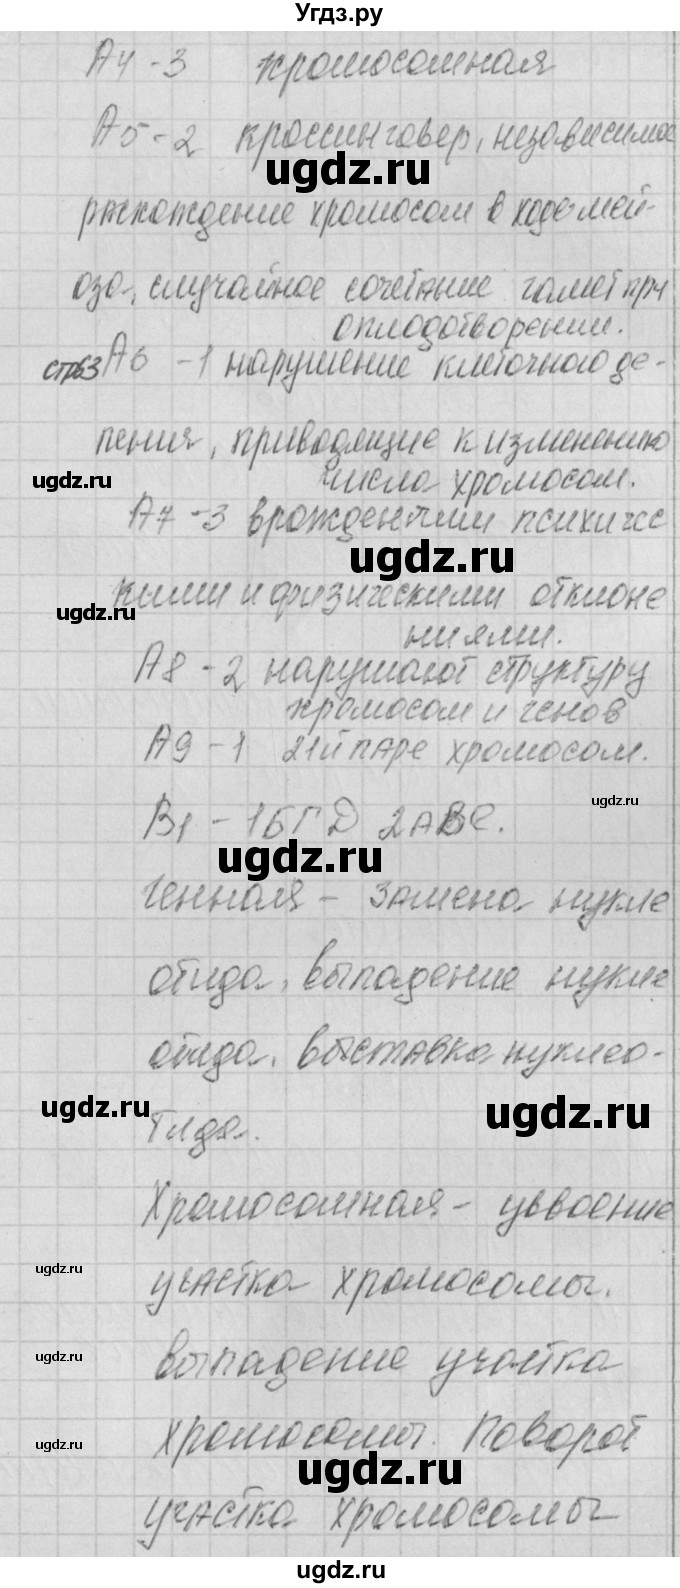 Угдз.ру
А4-3 хромосомная
А5-2 кроссинговер, независимое
ugdz.ru
расхождение хромосом в ходе мей-
оза, случайное сочетание гамет при
оплодотворении.
стр63 А6 -1 нарушение клеточного де-
ления, приводящие к изменению
ugdz.ru
числа хромосом.
А7-3 врожденными психичес
ugdz.ru
кими и физическими отклоне
ugdz.ru
ниями.
А8-2 нарушают структуру
хромосом и генов
А9-1 21й паре хромосом.
ugdz.ru
В1-1БГД 2АВЕ.
ugdz.ru
Генная - замена нукле
отида, выпадение нукле
отида, выставка нуклео-
ugdz.ru
ugdz.ru
тида.
Хромосомная - удвоение
ugdz.ru
участка хромосомы.
ugdz.ru
выпадение участка
ugdz.ru
хромосомы. Поворот
ugdz.ru
участка хромосомы
ugdz.ru